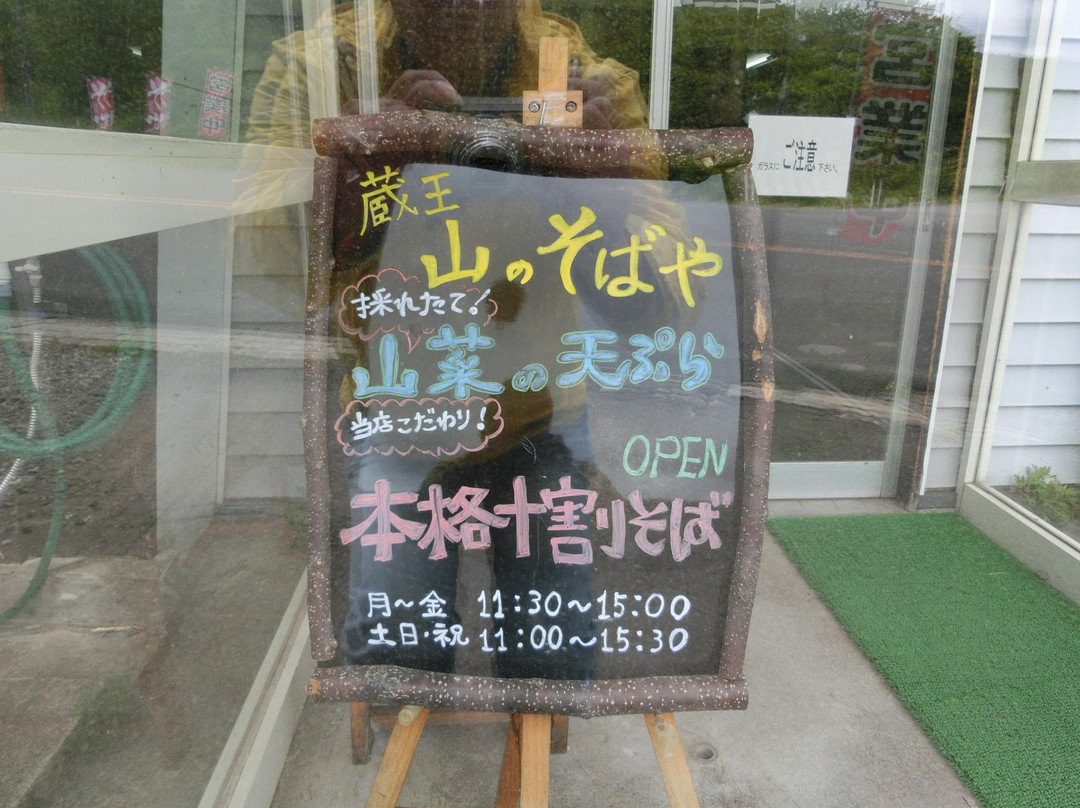 蔵王
山のそばや
採れたて！
山菜の天ぷら
当店こだわり！
OPEN
本格十割そば
月～金 11:30～15:00
土日・祝 11:00～15:30
ガラスにご注意下さい。
営業中
営業中